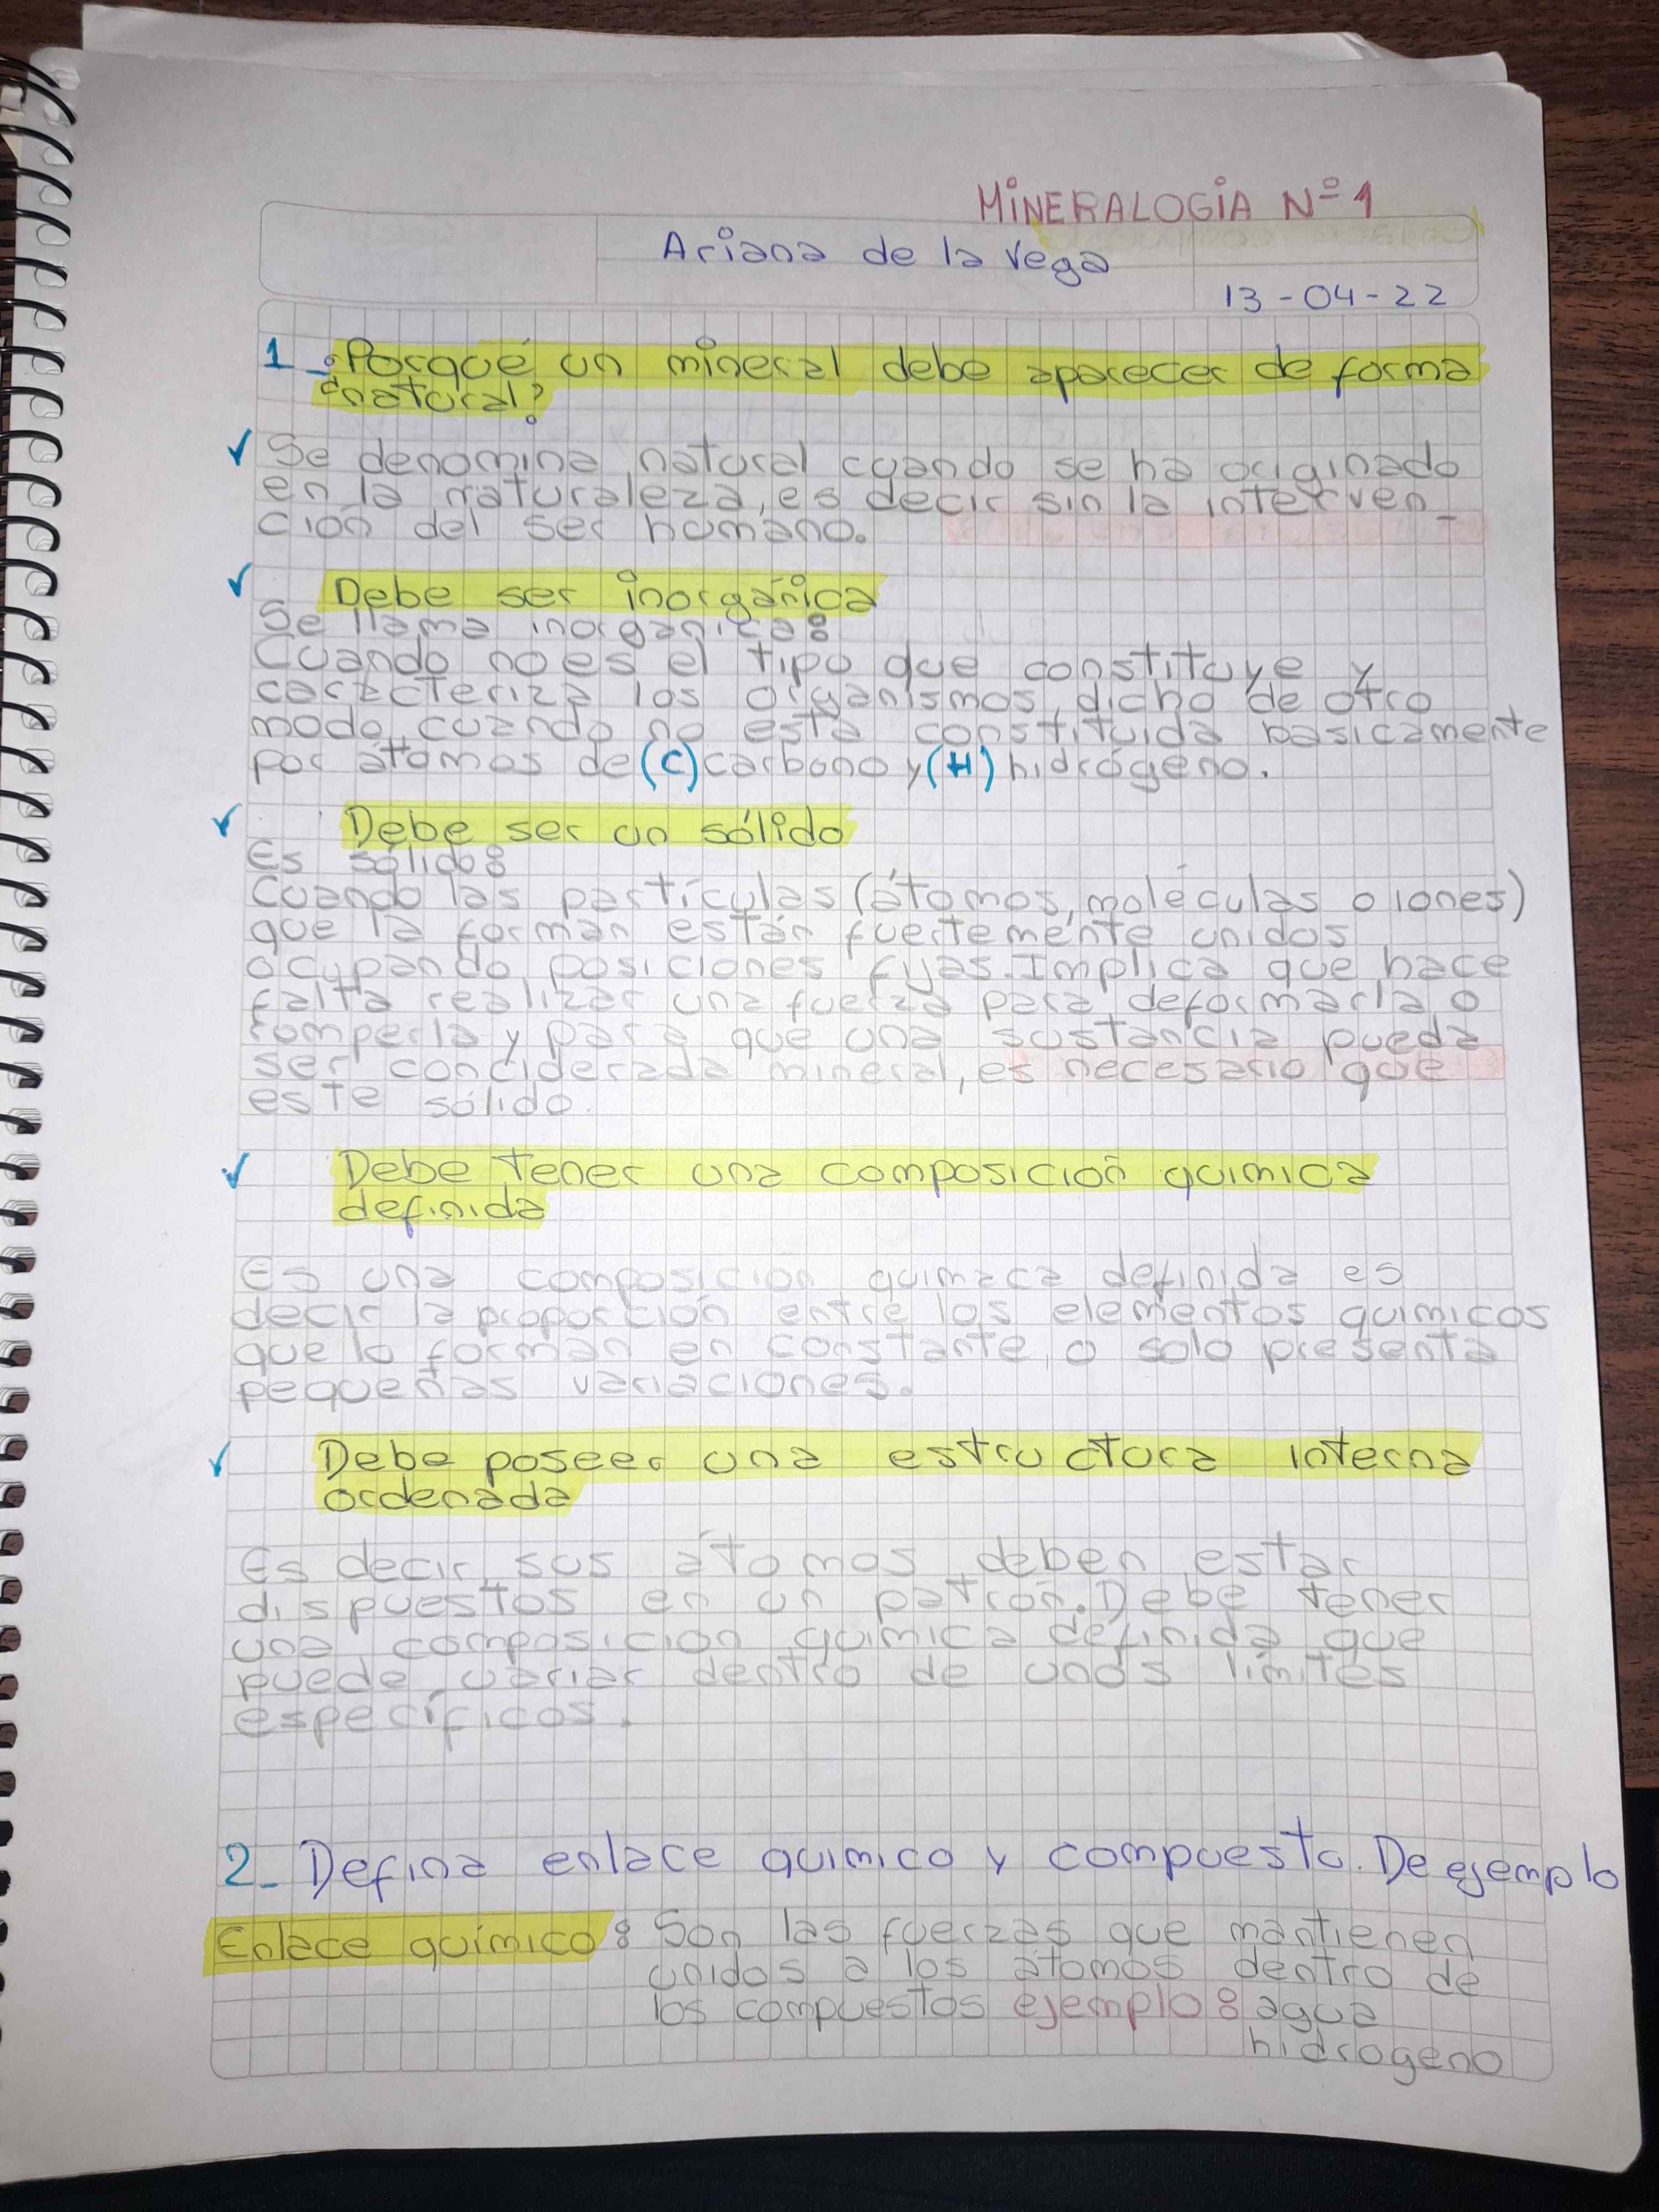 MINERALOGIA Nº 1
Ariana de la Vega
13-04-22
1_ ¿Porqué un mineral debe aparecer de forma
natural?
✓ Se denomina natural cuando se ha originado
en la naturaleza, es decir sin la interven_
ción del ser humano.
✓ Debe ser inorgánica
Se llama inorganica:
Cuando no es el tipo que constituye y
caracteriza los organismos, dicho de otro
modo, cuando no esta constituida basicamente
por átomos de (C) carbono y (H) hidrógeno.
✓ Debe ser un sólido
Es sólido:
Cuando las partículas (átomos, moléculas o iones)
que la forman están fuertemente unidos
ocupando posiciones fijas. Implica que hace
falta realizar una fuerza para deformarla o
romperla y para que una sustancia pueda
ser conciderada mineral, es necesario que
este sólido.
✓ Debe tener una composición quimica
definida
Es una composicion quimaca definida es
decir la proporción entre los elementos quimicos
que lo forman en constante, o solo presenta
pequeñas variaciones.
✓ Debe poseer una estructura interna
ordenada
Es decir, sus átomos deben estar
dispuestos en un patrón. Debe tener
una composicion quimica definida que
puede variar dentro de unos limites
específicos.
2_ Defina enlace quimico y compuesto. De ejemplo
Enlace químico: Son las fuerzas que mantienen
unidos a los átomos dentro de
los compuestos ejemplo: agua
hidrogeno